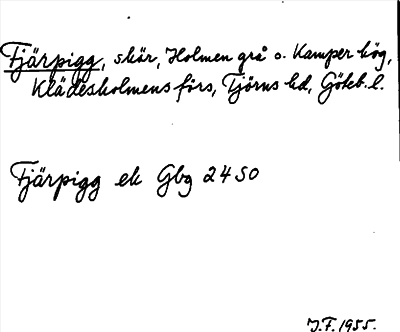 Fjärpigg, skär, Holmen grå o. Kamper hög,
Klädesholmens förs, Tjörns hd, Göteb. l.
Fjärpigg ek Gbg 24 SO
J.F. 1955.